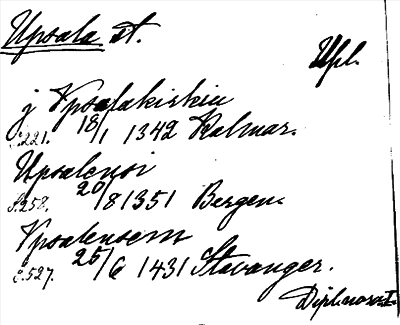 Upsala st.
Upl.
j Vpsalakirkiu
S.221. 18/1 1342 Kalmar.
Upsalensi
S.258. 20/8 1351 Bergen.
Vpsalensem
S.527. 25/6 1431 Stavanger.
Dipl. norv. I